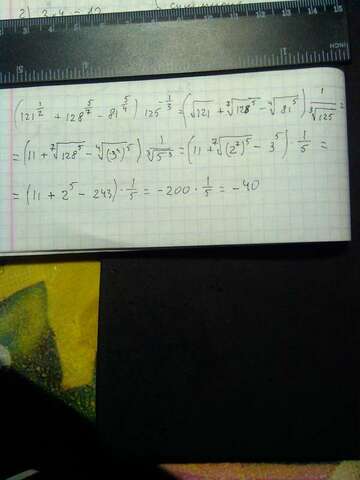 (121^{1/2} + 128^{5/7} - 81^{5/4}) 125^{-1/3} = (√121 + ⁷√128⁵ - ⁴√81⁵) 1/³√125 =
= (11 + ⁷√128⁵ - ⁴√(3⁴)⁵) 1/³√5³ = (11 + ⁷√(2⁷)⁵ - 3⁵) · 1/5 =
= (11 + 2⁵ - 243) · 1/5 = -200 · 1/5 = -40